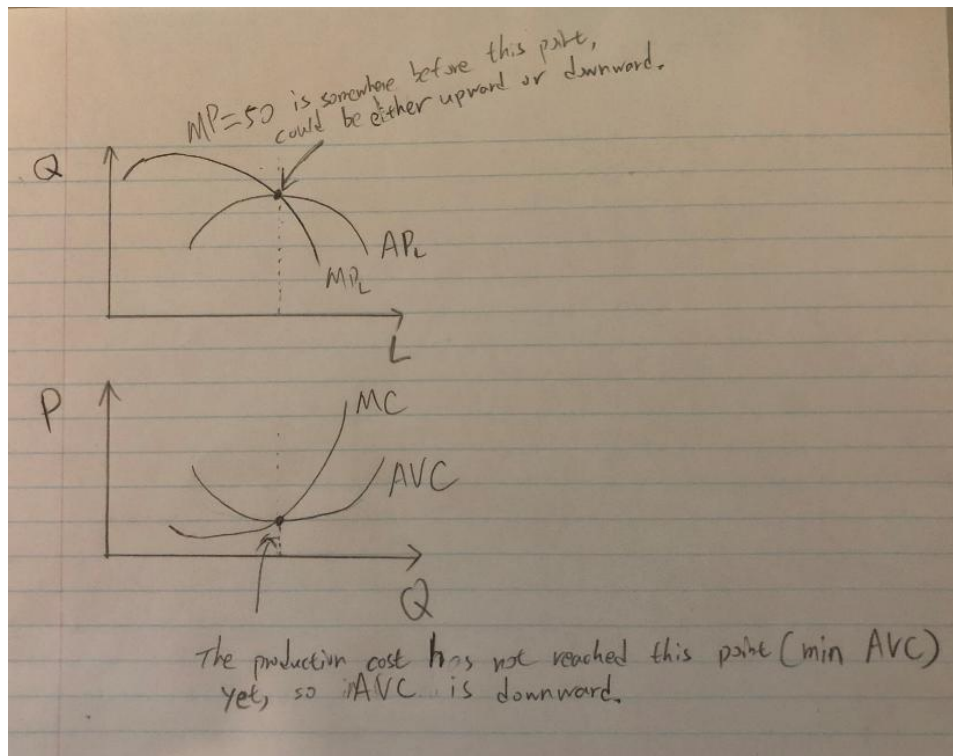 MP=50 is somewhere before this point,
could be either upward or downward.
Q
AP_L
MP_L
L
P
MC
AVC
Q
The production cost has not reached this point (min AVC)
yet, so AVC is downward.